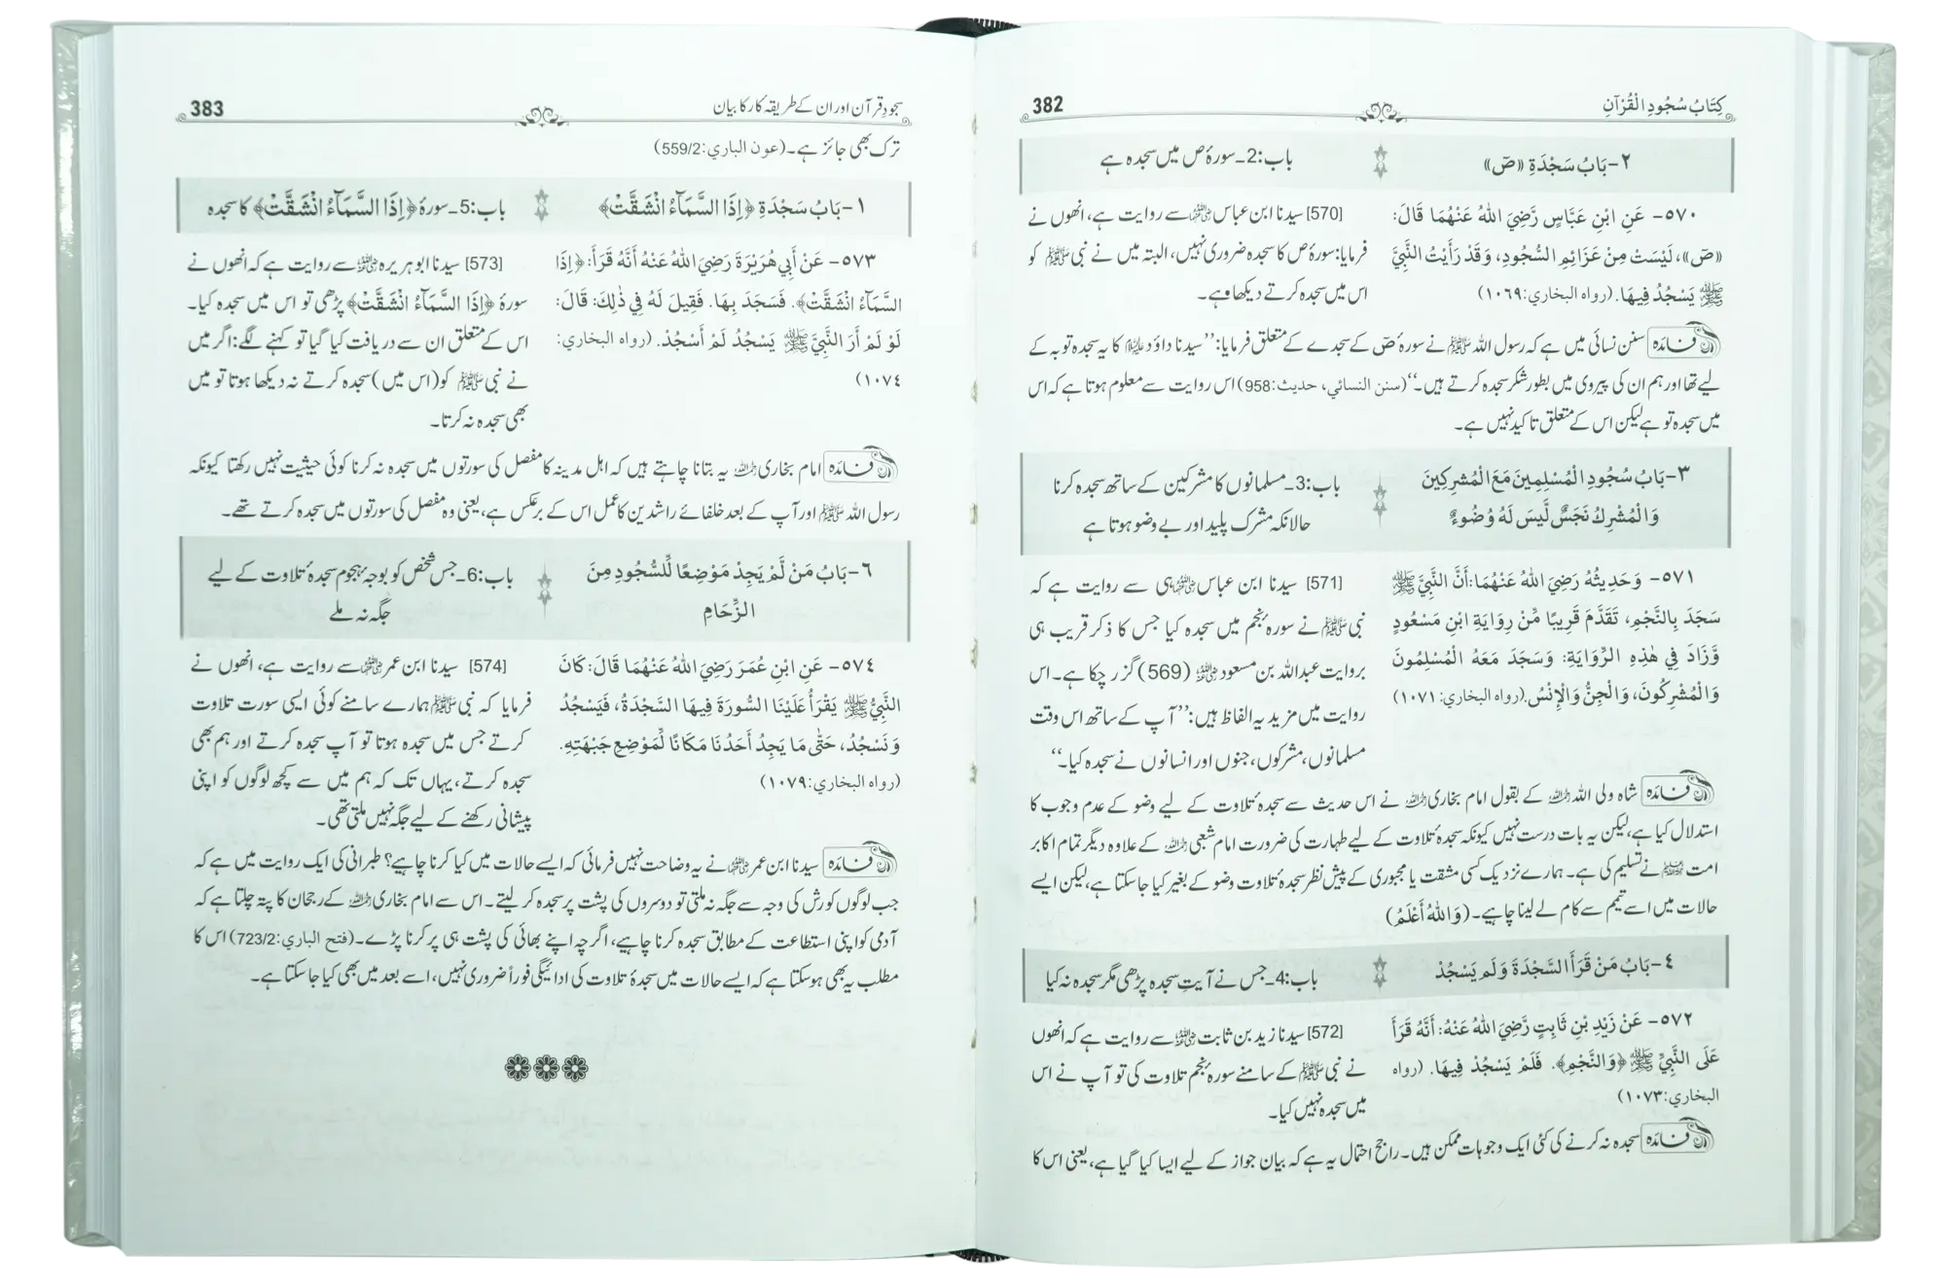 كِتَابُ سُجُودِ الْقُرْآنِ
382
٢- بَابُ سَجْدَةِ «صٓ»
باب:2۔ سورۂ ص میں سجدہ ہے
٥٧٠- عَنِ ابْنِ عَبَّاسٍ رَّضِيَ اللهُ عَنْهُمَا قَالَ:
«صٓ»، لَيْسَتْ مِنْ عَزَائِمِ السُّجُودِ، وَقَدْ رَأَيْتُ النَّبِيَّ
ﷺ يَسْجُدُ فِيهَا. (رواه البخاري:١٠٦٩)
[570] سیدنا ابن عباس رضی اللہ عنہما سے روایت ہے، انھوں نے
فرمایا: سورۂ ص کا سجدہ ضروری نہیں، البتہ میں نے نبی ﷺ کو
اس میں سجدہ کرتے دیکھا ہے۔
فائدہ سنن نسائی میں ہے کہ رسول اللہ ﷺ نے سورۂ صٓ کے سجدے کے متعلق فرمایا: ’’سیدنا داؤد علیہ السلام کا یہ سجدہ توبہ کے
لیے تھا اور ہم ان کی پیروی میں بطور شکر سجدہ کرتے ہیں۔‘‘ (سنن النسائي، حدیث:958) اس روایت سے معلوم ہوتا ہے کہ اس
میں سجدہ تو ہے لیکن اس کے متعلق تاکید نہیں ہے۔
٣- بَابُ سُجُودِ الْمُسْلِمِينَ مَعَ الْمُشْرِكِينَ
وَالْمُشْرِكُ نَجَسٌ لَّيْسَ لَهُ وُضُوءٌ
باب:3۔ مسلمانوں کا مشرکین کے ساتھ سجدہ کرنا
حالانکہ مشرک پلید اور بے وضو ہوتا ہے
٥٧١- وَحَدِيثُهُ رَضِيَ اللهُ عَنْهُمَا: أَنَّ النَّبِيَّ ﷺ
سَجَدَ بِالنَّجْمِ، تَقَدَّمَ قَرِيبًا مِّنْ رِوَايَةِ ابْنِ مَسْعُودٍ
وَّزَادَ فِي هٰذِهِ الرِّوَايَةِ: وَسَجَدَ مَعَهُ الْمُسْلِمُونَ
وَالْمُشْرِكُونَ، وَالْجِنُّ وَالْإِنْسُ. (رواه البخاري: ١٠٧١)
[571] سیدنا ابن عباس رضی اللہ عنہما ہی سے روایت ہے کہ
نبی ﷺ نے سورۂ نجم میں سجدہ کیا جس کا ذکر قریب ہی
بروایت عبداللہ بن مسعود رضی اللہ عنہ (569) گزر چکا ہے۔ اس
روایت میں مزید یہ الفاظ ہیں: ’’آپ کے ساتھ اس وقت
مسلمانوں، مشرکوں، جنوں اور انسانوں نے سجدہ کیا۔‘‘
فائدہ شاہ ولی اللہ رحمہ اللہ کے بقول امام بخاری رحمہ اللہ نے اس حدیث سے سجدۂ تلاوت کے لیے وضو کے عدم وجوب کا
استدلال کیا ہے، لیکن یہ بات درست نہیں کیونکہ سجدۂ تلاوت کے لیے طہارت کی ضرورت امام شعبی رحمہ اللہ کے علاوہ دیگر تمام اکابر
امت نے تسلیم کی ہے۔ ہمارے نزدیک کسی مشقت یا مجبوری کے پیش نظر سجدۂ تلاوت وضو کے بغیر کیا جاسکتا ہے، لیکن ایسے
حالات میں اسے تیمم سے کام لے لینا چاہیے۔ (وَاللهُ أَعْلَمُ)
٤- بَابُ مَنْ قَرَأَ السَّجْدَةَ وَلَم يَسْجُدْ
باب:4۔ جس نے آیتِ سجدہ پڑھی مگر سجدہ نہ کیا
٥٧٢- عَنْ زَيْدِ بْنِ ثَابِتٍ رَّضِيَ اللهُ عَنْهُ: أَنَّهُ قَرَأَ
عَلَى النَّبِيِّ ﷺ ﴿وَالنَّجْمِ﴾. فَلَمْ يَسْجُدْ فِيهَا. (رواه
البخاري:١٠٧٣)
[572] سیدنا زید بن ثابت رضی اللہ عنہ سے روایت ہے کہ انھوں
نے نبی ﷺ کے سامنے سورۂ نجم تلاوت کی تو آپ نے اس
میں سجدہ نہیں کیا۔
فائدہ سجدہ نہ کرنے کی کئی ایک وجوہات ممکن ہیں۔ راجح احتمال یہ ہے کہ بیان جواز کے لیے ایسا کیا گیا ہے، یعنی اس کا
سجودِ قرآن اور ان کے طریقۂ کار کا بیان
383
ترک بھی جائز ہے۔ (عون الباري:559/2)
١- بَابُ سَجْدَةِ ﴿إِذَا السَّمَآءُ انْشَقَّتْ﴾
باب:5۔ سورۂ ﴿إِذَا السَّمَآءُ انْشَقَّتْ﴾ کا سجدہ
٥٧٣- عَنْ أَبِي هُرَيْرَةَ رَضِيَ اللهُ عَنْهُ أَنَّهُ قَرَأَ: ﴿إِذَا
السَّمَآءُ انْشَقَّتْ﴾. فَسَجَدَ بِهَا. فَقِيلَ لَهُ فِي ذٰلِكَ: قَالَ:
لَوْ لَمْ أَرَ النَّبِيَّ ﷺ يَسْجُدُ لَمْ أَسْجُدْ. (رواه البخاري:
١٠٧٤)
[573] سیدنا ابوہریرہ رضی اللہ عنہ سے روایت ہے کہ انھوں نے
سورۂ ﴿إِذَا السَّمَآءُ انْشَقَّتْ﴾ پڑھی تو اس میں سجدہ کیا۔
اس کے متعلق ان سے دریافت کیا گیا تو کہنے لگے: اگر میں
نے نبی ﷺ کو (اس میں) سجدہ کرتے نہ دیکھا ہوتا تو میں
بھی سجدہ نہ کرتا۔
فائدہ امام بخاری رحمہ اللہ یہ بتانا چاہتے ہیں کہ اہل مدینہ کا مفصل کی سورتوں میں سجدہ نہ کرنا کوئی حیثیت نہیں رکھتا کیونکہ
رسول اللہ ﷺ اور آپ کے بعد خلفائے راشدین کا عمل اس کے برعکس ہے، یعنی وہ مفصل کی سورتوں میں سجدہ کرتے تھے۔
٦- بَابُ مَنْ لَّمْ يَجِدْ مَوْضِعًا لِّلسُّجُودِ مِنَ
الزِّحَامِ
باب:6۔ جس شخص کو بوجہ ہجوم سجدۂ تلاوت کے لیے
جگہ نہ ملے
٥٧٤- عَنِ ابْنِ عُمَرَ رَضِيَ اللهُ عَنْهُمَا قَالَ: كَانَ
النَّبِيُّ ﷺ يَقْرَأُ عَلَيْنَا السُّورَةَ فِيهَا السَّجْدَةُ، فَيَسْجُدُ
وَنَسْجُدُ، حَتّٰى مَا يَجِدُ أَحَدُنَا مَكَانًا لِّمَوْضِعِ جَبْهَتِهِ.
(رواه البخاري:١٠٧٩)
[574] سیدنا ابن عمر رضی اللہ عنہما سے روایت ہے، انھوں نے
فرمایا کہ نبی ﷺ ہمارے سامنے کوئی ایسی سورت تلاوت
کرتے جس میں سجدہ ہوتا تو آپ سجدہ کرتے اور ہم بھی
سجدہ کرتے، یہاں تک کہ ہم میں سے کچھ لوگوں کو اپنی
پیشانی رکھنے کے لیے جگہ نہیں ملتی تھی۔
فائدہ سیدنا ابن عمر رضی اللہ عنہما نے یہ وضاحت نہیں فرمائی کہ ایسے حالات میں کیا کرنا چاہیے؟ طبرانی کی ایک روایت میں ہے کہ
جب لوگوں کو رش کی وجہ سے جگہ نہ ملتی تو دوسروں کی پشت پر سجدہ کر لیتے۔ اس سے امام بخاری رحمہ اللہ کے رجحان کا پتہ چلتا ہے کہ
آدمی کو اپنی استطاعت کے مطابق سجدہ کرنا چاہیے، اگرچہ اپنے بھائی کی پشت ہی پر کرنا پڑے۔ (فتح الباري:723/2) اس کا
مطلب یہ بھی ہوسکتا ہے کہ ایسے حالات میں سجدۂ تلاوت کی ادائیگی فوراً ضروری نہیں، اسے بعد میں بھی کیا جاسکتا ہے۔